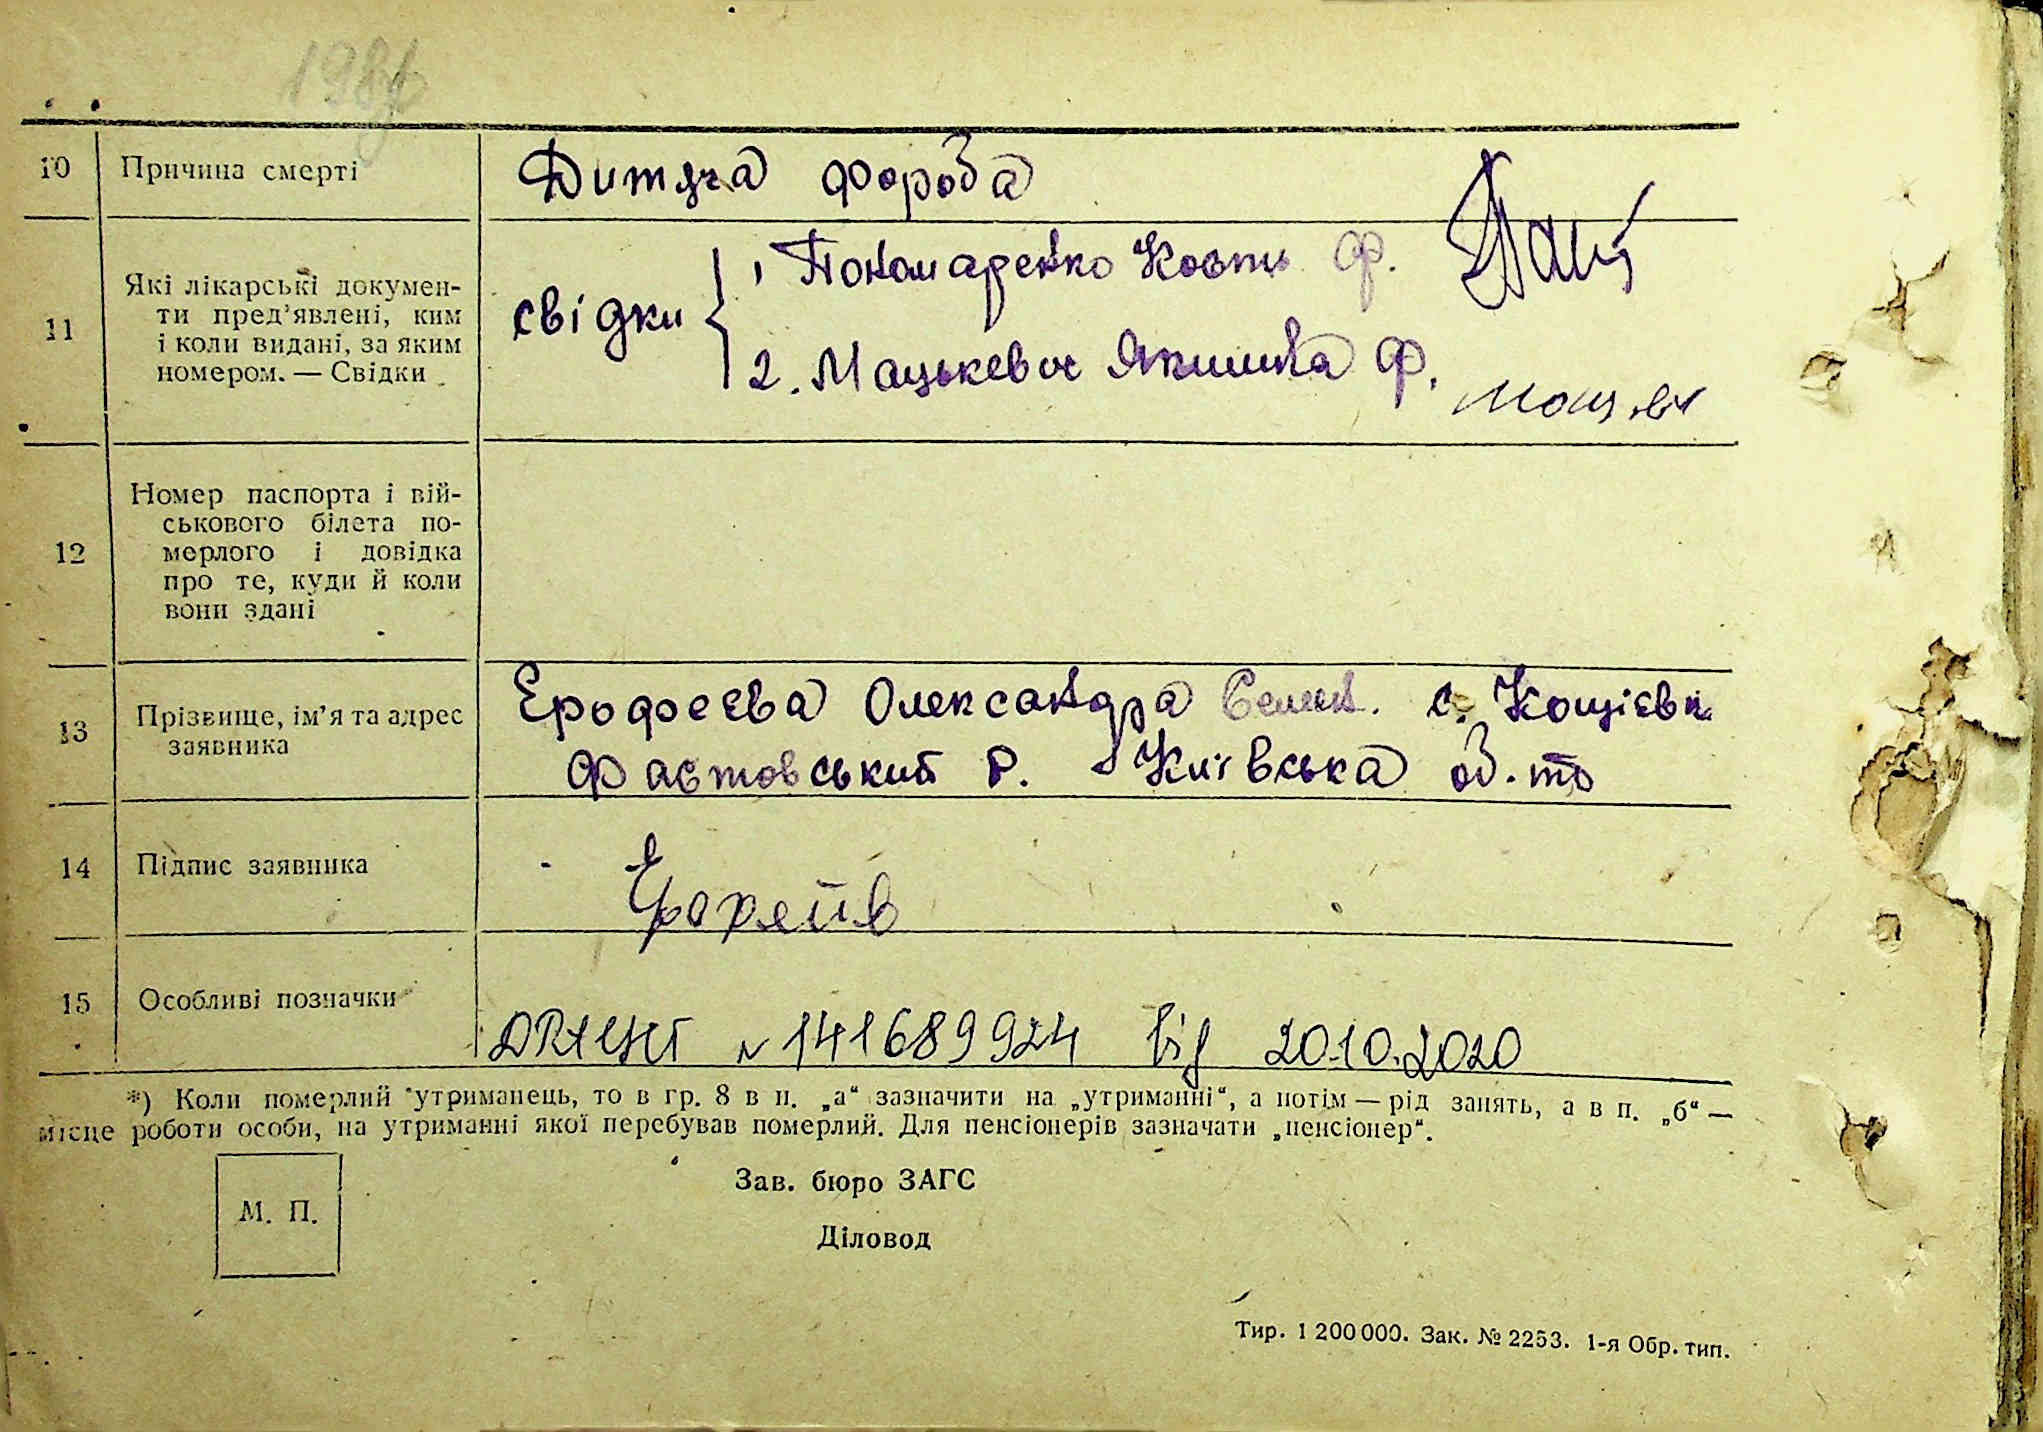 198
10 Причина смерті Дитяча фороба
11 Які лікарські докумен-
ти пред’явлені, ким
і коли видані, за яким
номером. — Свідки
свідки
1 Пономаренко Ф.
2. Мацькевич Ф.
12 Номер паспорта і вій-
ськового білета по-
мерлого і довідка
про те, куди й коли
вони здані
13 Прізвище, ім’я та адрес
заявника
Ерофеєва Олександра с. Кощієвк
Фастовський р. Київська об.
14 Підпис заявника
15 Особливі позначки
ДРАЦСГ № 141689924 від 20.10.2020
*) Коли померлий утриманець, то в гр. 8 в п. „а“ зазначити на „утриманні“, а потім — рід занять, а в п. „б“ —
місце роботи особи, на утриманні якої перебував померлий. Для пенсіонерів зазначати „пенсіонер“.
М. П.
Зав. бюро ЗАГС
Діловод
Тир. 1 200 000. Зак. № 2253. 1-я Обр. тип.